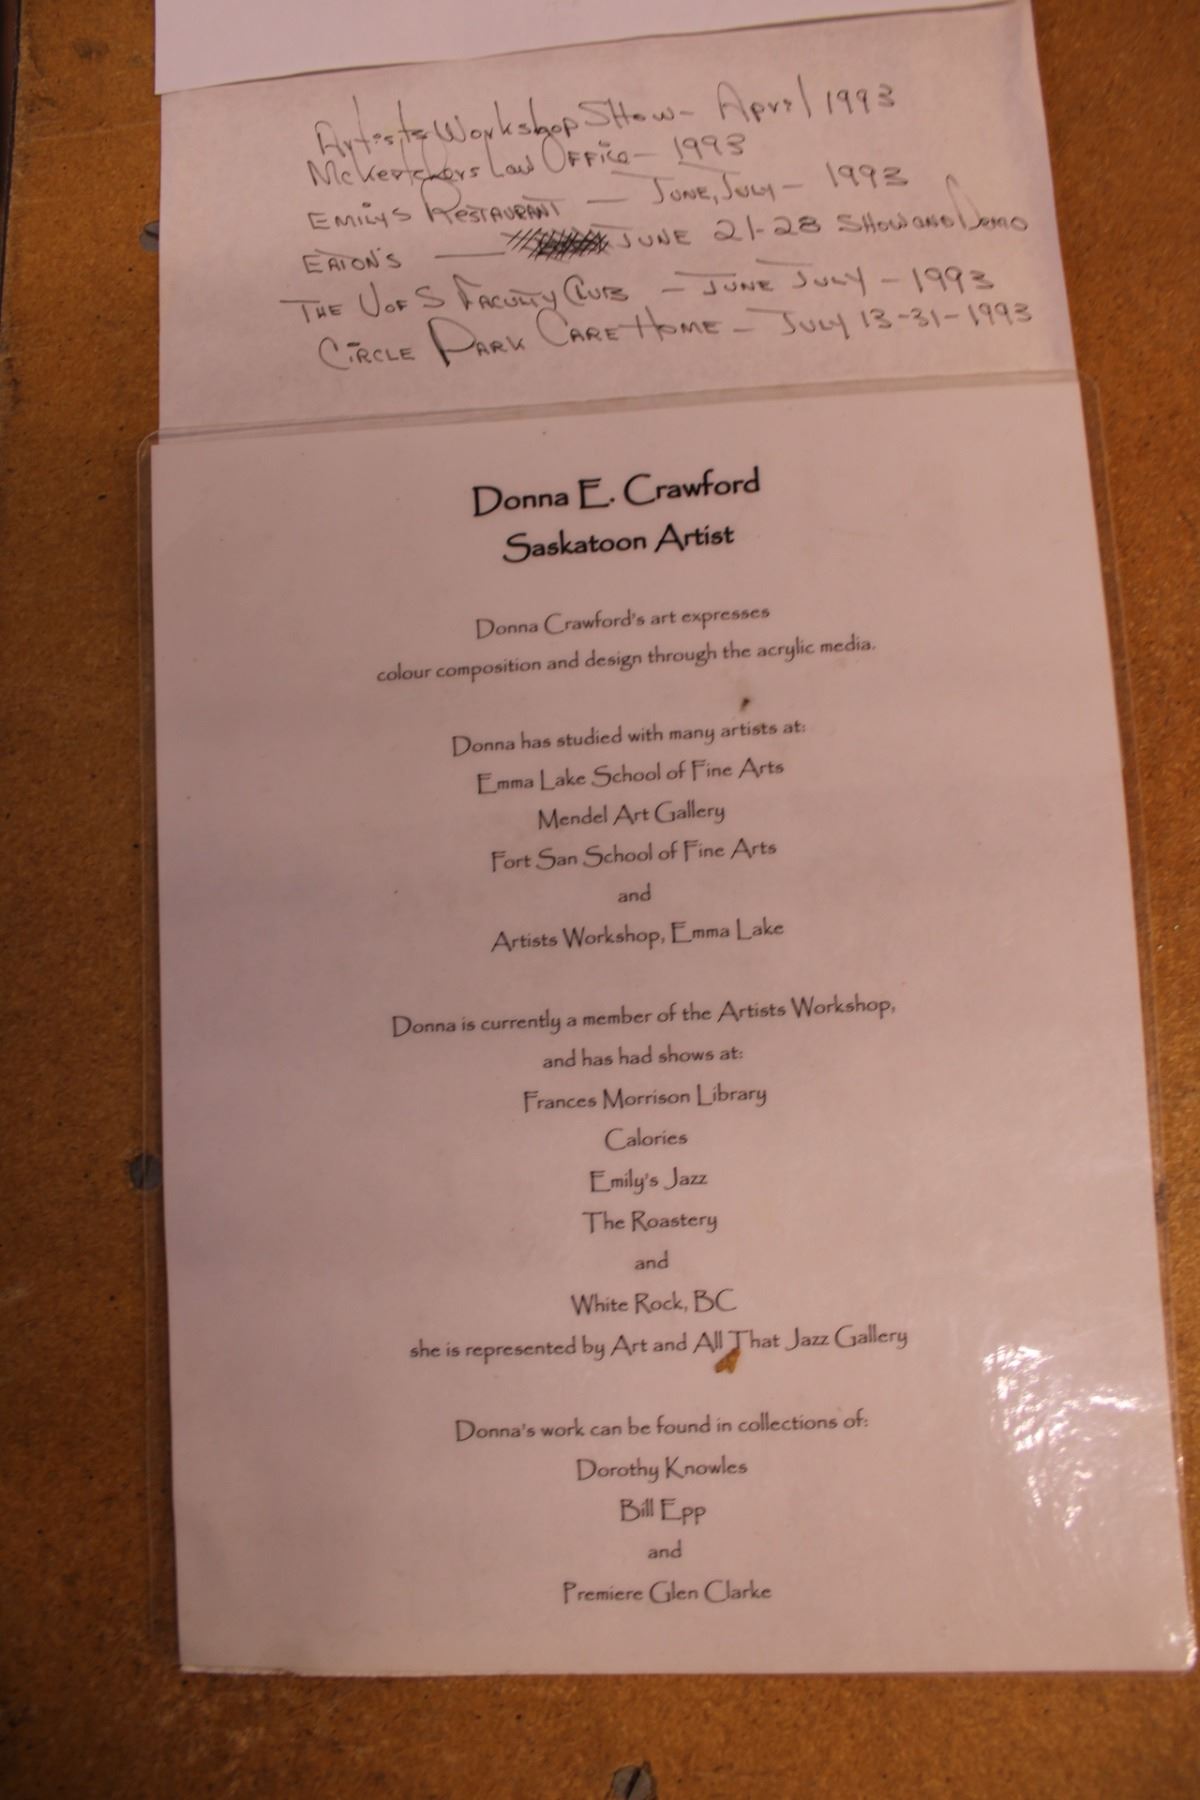 Artists Workshop Show - April 1993
McKerchers Law Office - 1993
EMILYS RESTAURANT — JUNE, JULY - 1993
EATON'S — JUNE 21-28 SHOW AND DEMO
THE U OF S FACULTY CLUB - JUNE JULY - 1993
CIRCLE PARK CARE HOME - JULY 13-31-1993
Donna E. Crawford
Saskatoon Artist
Donna Crawford's art expresses
colour composition and design through the acrylic media.
Donna has studied with many artists at:
Emma Lake School of Fine Arts
Mendel Art Gallery
Fort San School of Fine Arts
and
Artists Workshop, Emma Lake
Donna is currently a member of the Artists Workshop,
and has had shows at:
Frances Morrison Library
Calories
Emily's Jazz
The Roastery
and
White Rock, BC
she is represented by Art and All That Jazz Gallery
Donna's work can be found in collections of:
Dorothy Knowles
Bill Epp
and
Premiere Glen Clarke